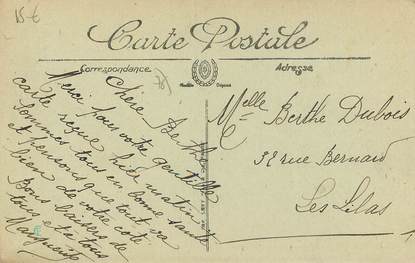 15 €
Carte Postale
Correspondance
Adresse
(78)
Chère Berthe
Merci pour votre gentille
carte reçue hier matin
sommes tous en bonne santé
et pensons que tout va
bien de votre coté
Bons baisers de
tous et à tous
Marguerite
Melle Berthe Dubois
32 rue Bernard
Les Lilas